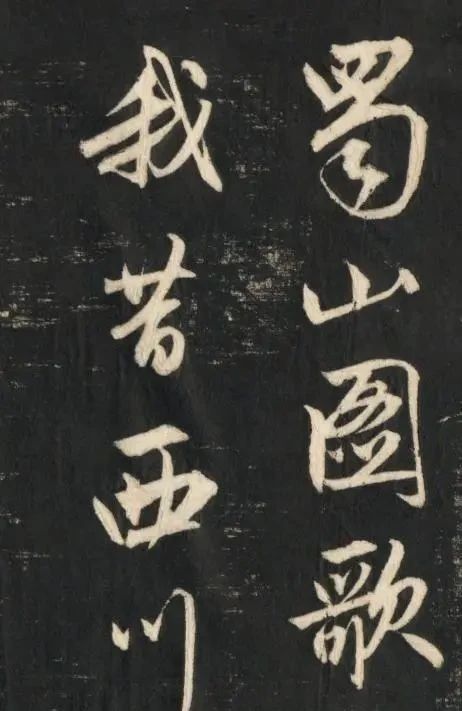 蜀山图歌
我昔西川